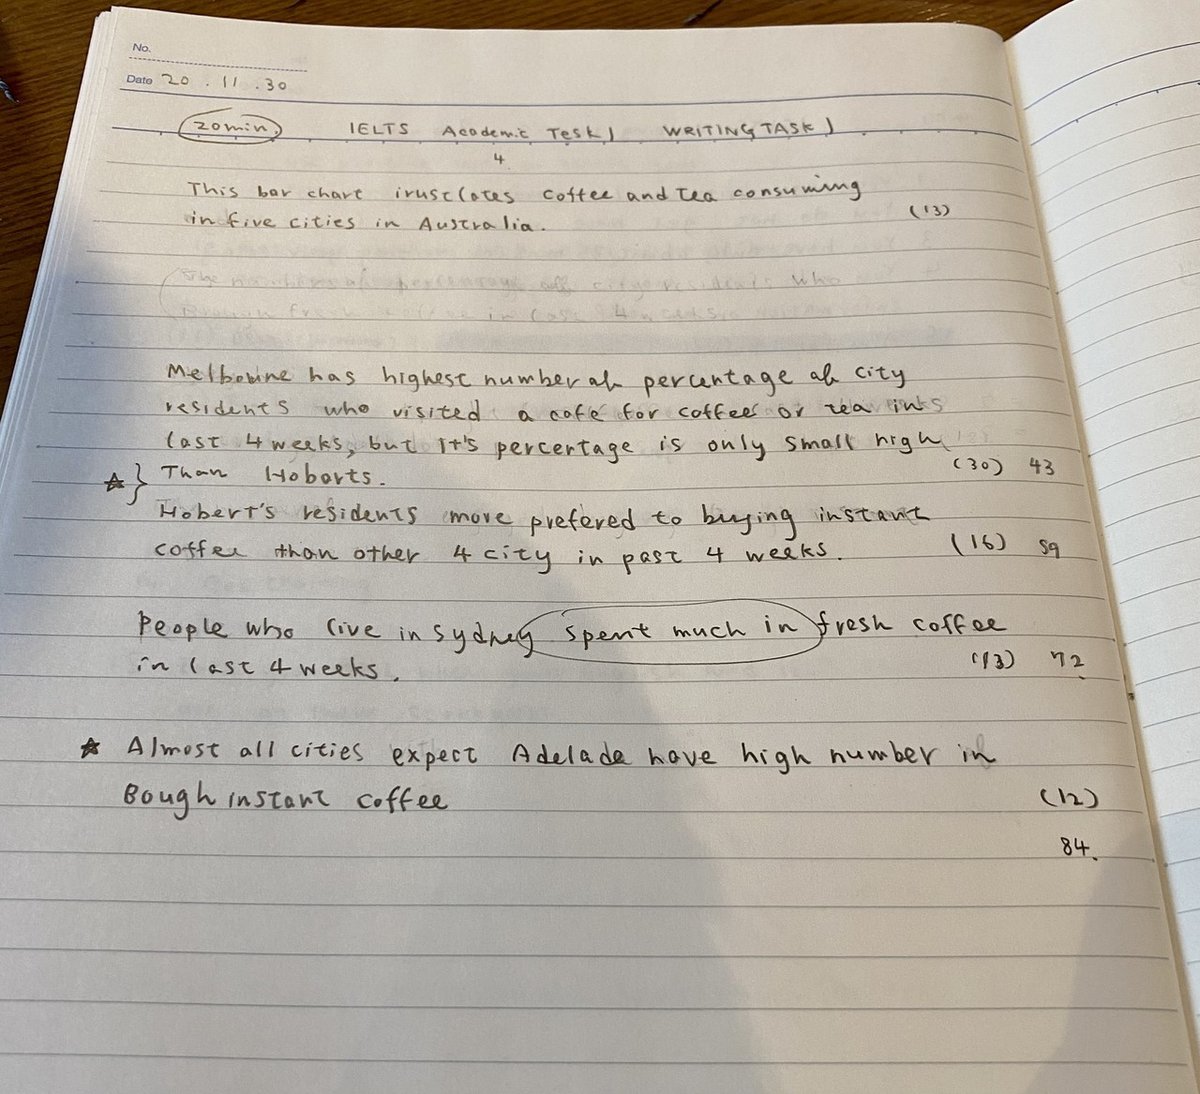 No.
Date 20 . 11 . 30
20min. IELTS Academic Tesk 1 WRITING TASK 1
4
This bar chart irustlates coffee and tea consuming
in five cities in Australia. (13)
Melbourne has highest number of percentage of city
residents who visited a cafe for coffee or tea in
last 4 weeks, but it's percentage is only small high
Than Hobarts. (30) 43
Hobert's residents more prefered to buying instant
coffee than other 4 city in past 4 weeks. (16) 59
People who live in sydney spent much in fresh coffee
in last 4 weeks. (13) 72
Almost all cities expect Adelade have high number in
Bough instant coffee (12)
84.